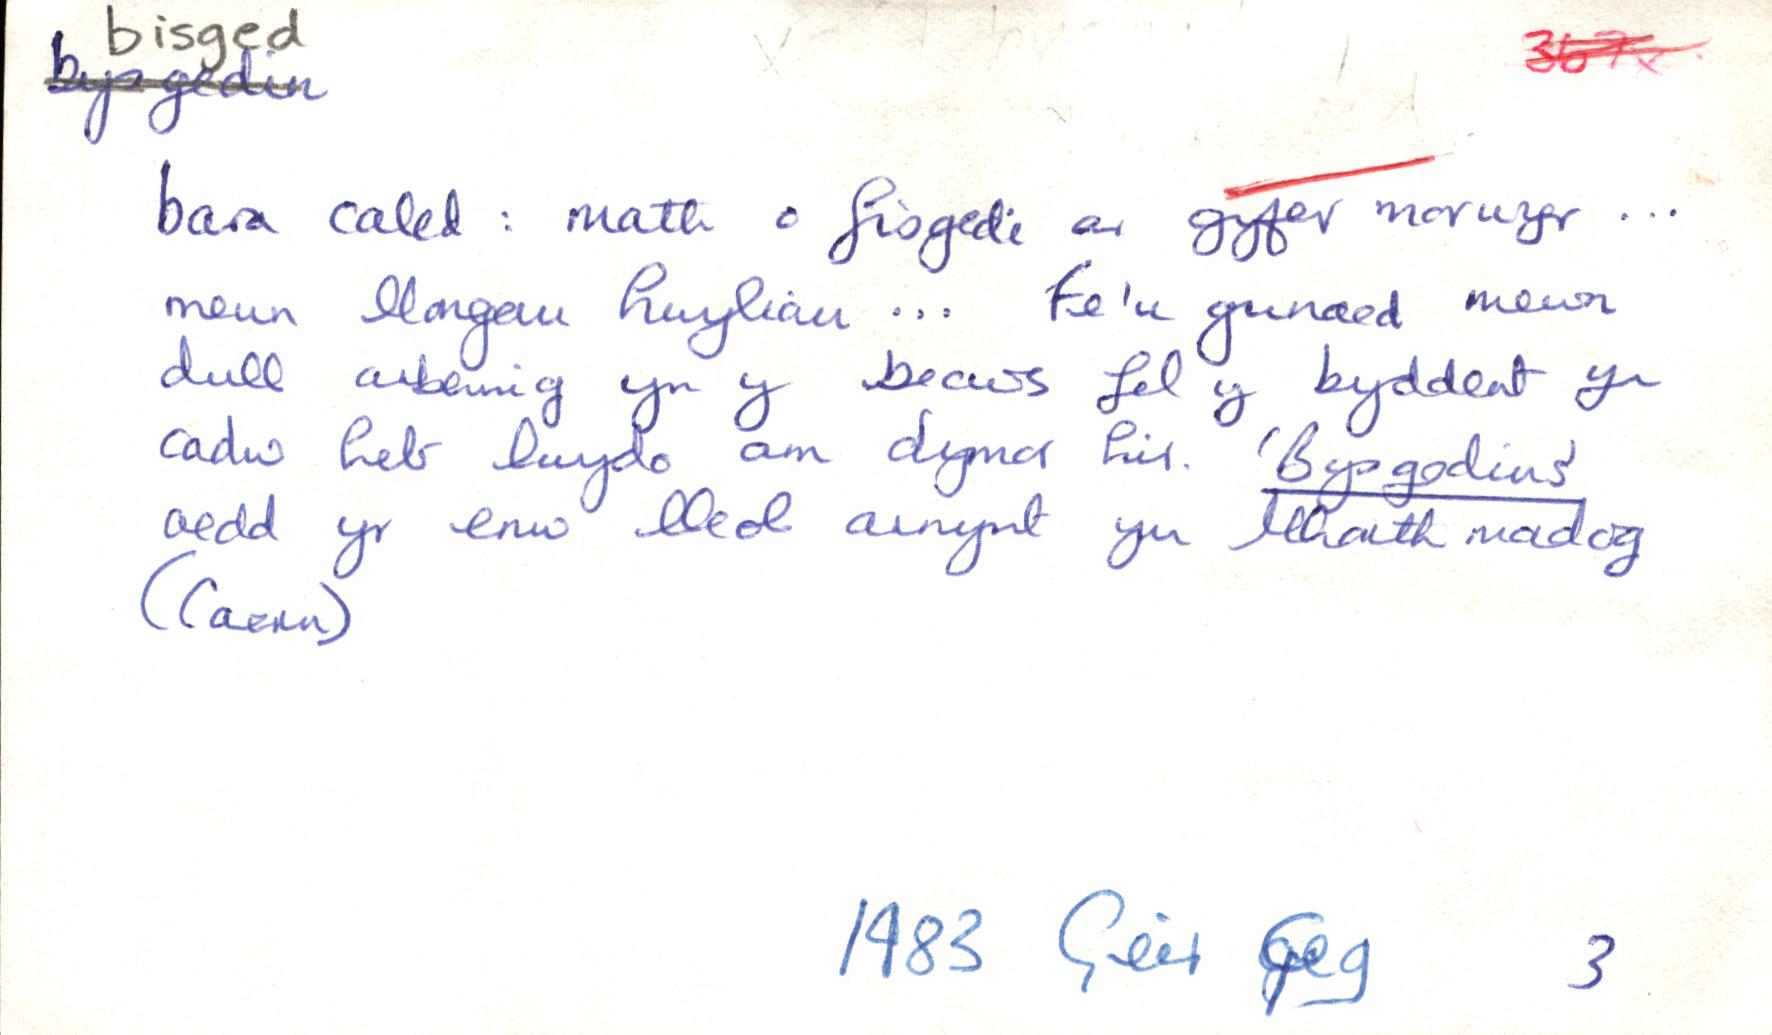 bisged
bysgedin
367x
bara caled : math o fisgedi ar gyfer morwyr ...
mewn llongau hwyliau ... Fe'u gwnaed mewn
dull arbennig yn y becws fel y byddent yn
cadw heb lwydo am dymor hir. 'Bysgodins'
oedd yr enw lleol arnynt yn Mhorth madog
(Caern)
1983 Geir Geg 3